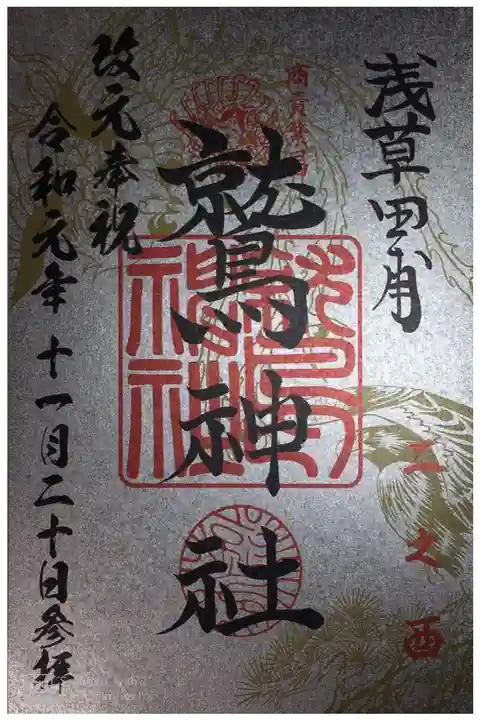 浅草田甫
二之酉
鷲神社
改元奉祝
令和元年十一月二十日参拝